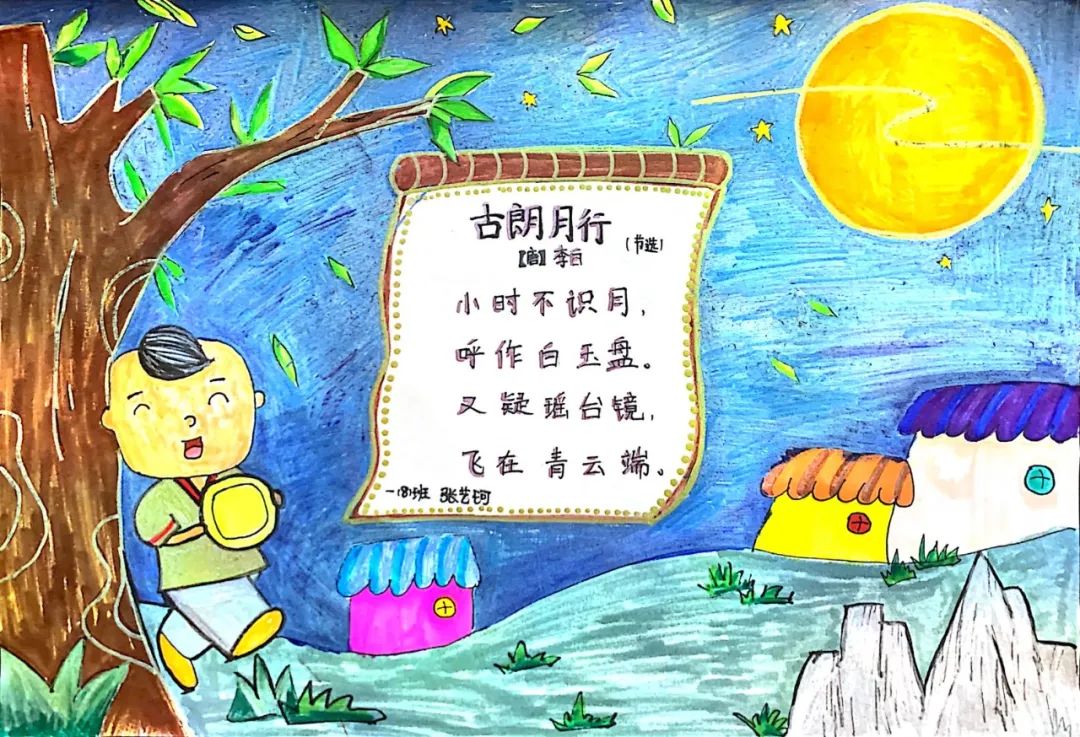 古朗月行
(节选)
【唐】李白
小时不识月，
呼作白玉盘。
又疑瑶台镜，
飞在青云端。
一(8)班 张艺钶